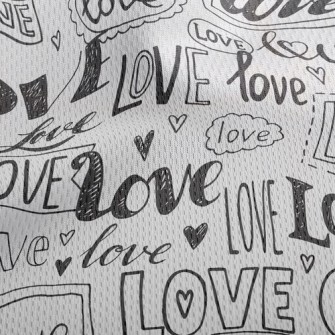 LOVE
love
love
LOVE
love
LOVE
love
love
Love
OVE
Love
LOVE
Lo
ve
love
LOVE